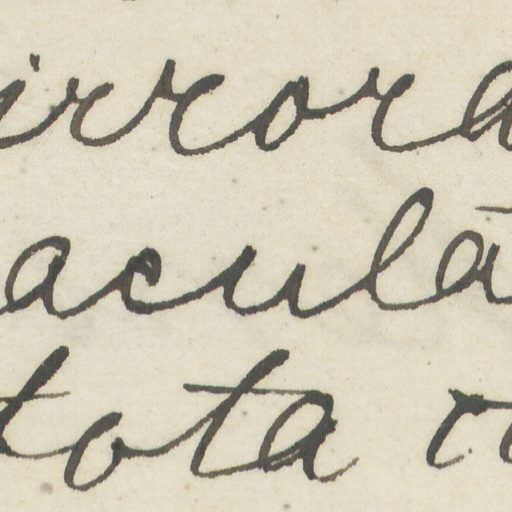 irrora
aculā
tota